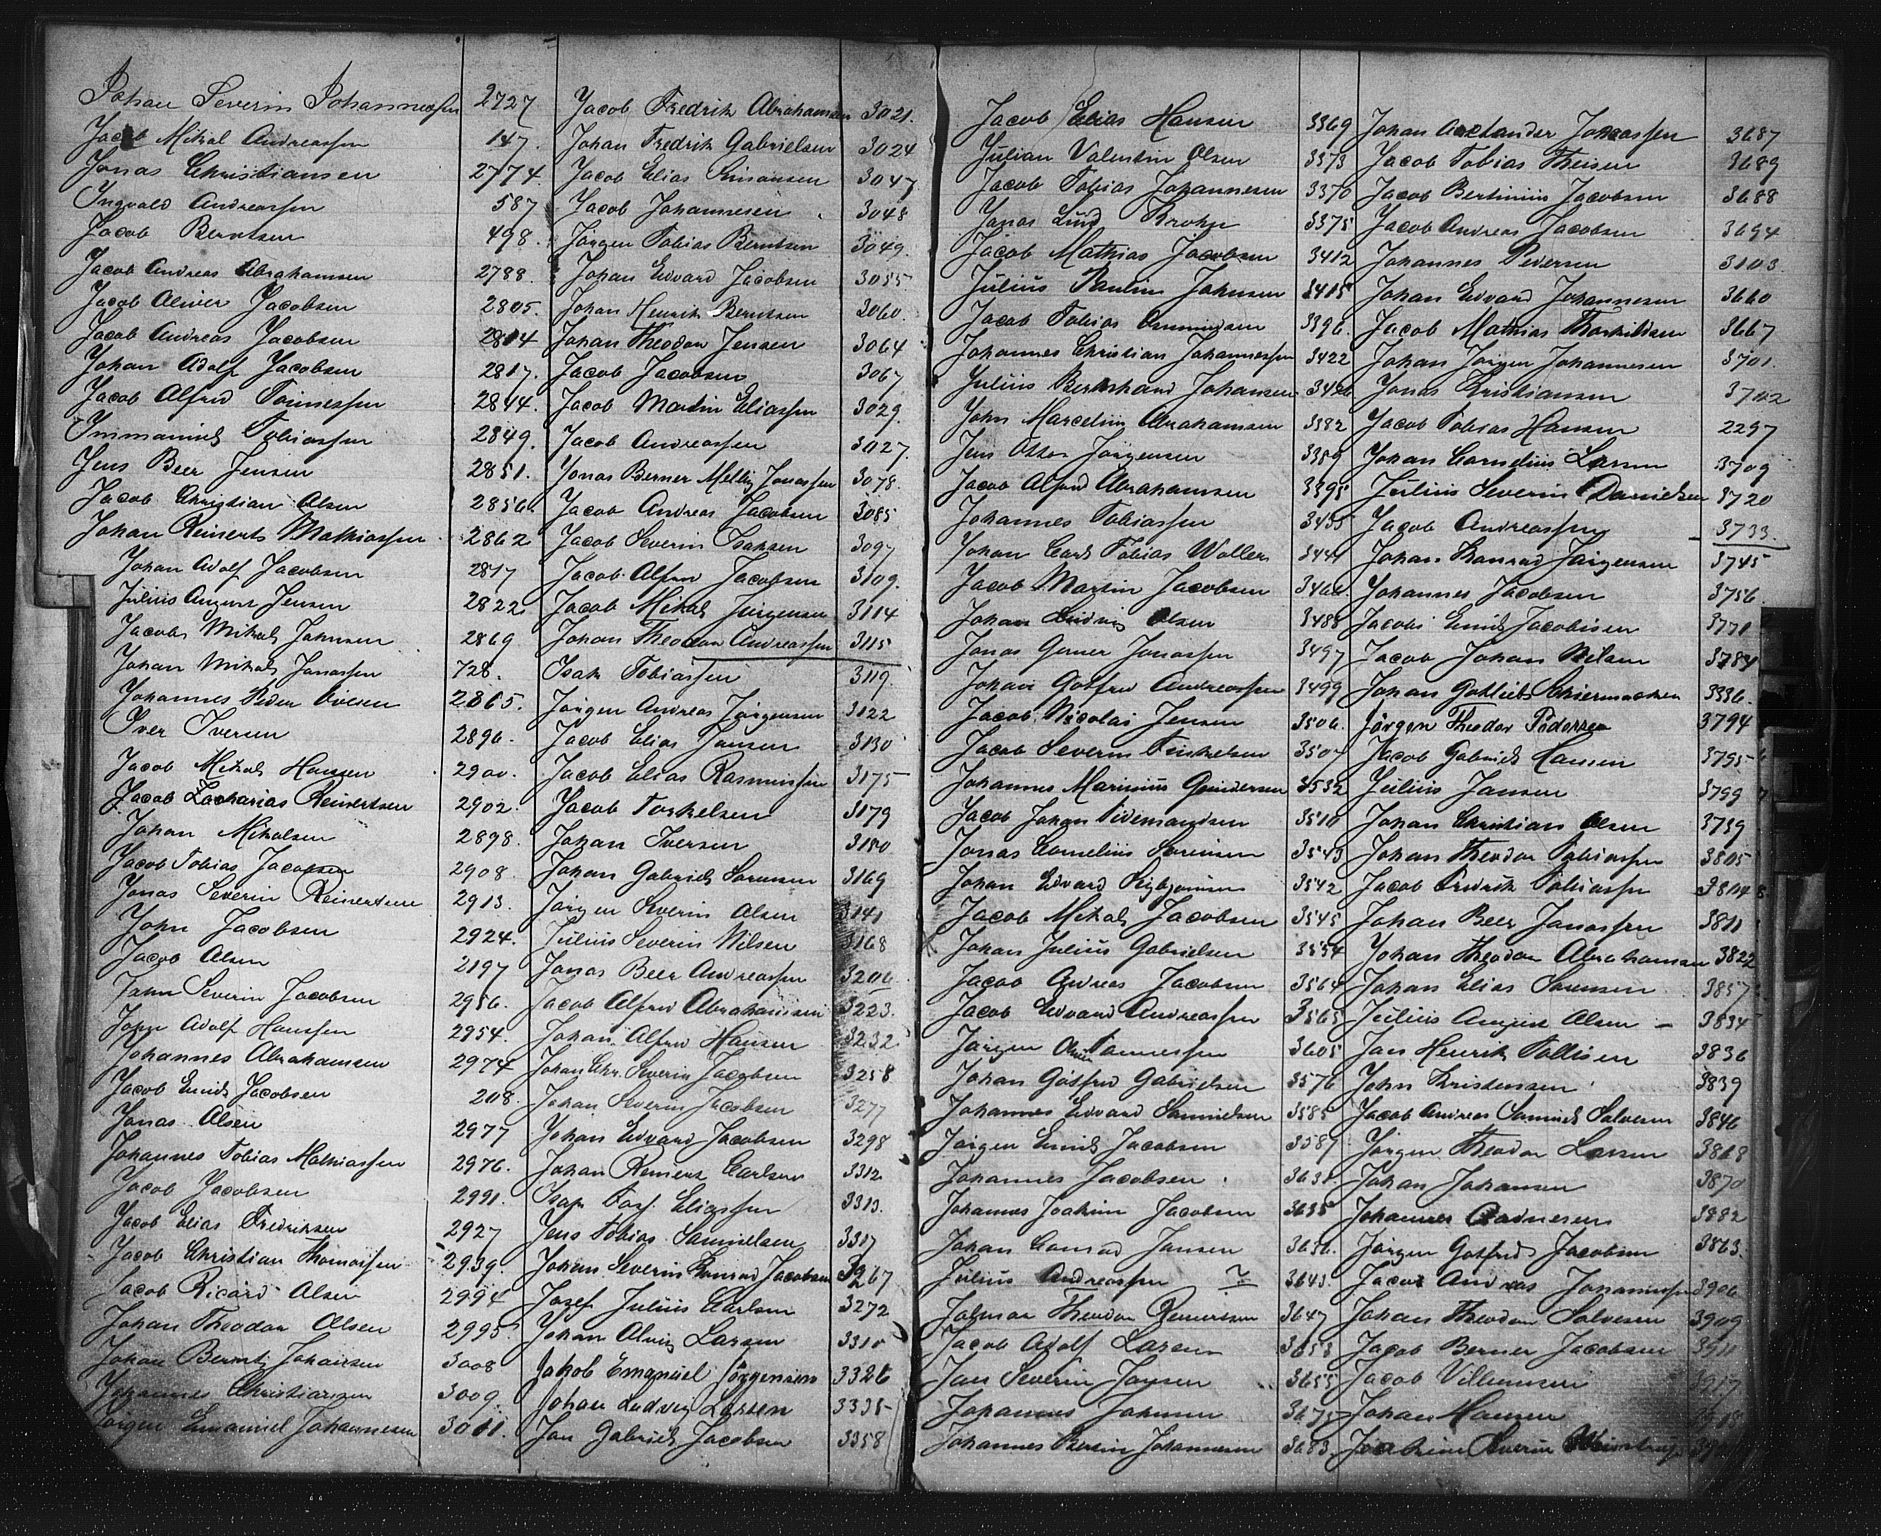 Johan Severin Johannessen 2727
Jacob Mikal Andreassen 147.
Jonas Christiansen 2774.
Ingvald Andreassen 587
Jacob Berntsen 498.
Jacob Andreas Abrahamsen 2788.
Jacob Oliver Jacobsen 2805.
Jacob Andreas Jacobsen 2814
Johan Adolf Jacobsen 2817.
Jacob Alfred Tønnessen 2844.
Immanuel Tobiassen 2849.
Jens Beer Jensen 2851.
Jacob Christian Olsen 2856.
Johan Reinert Mathiassen 2862
Johan Adolf Jacobsen 2817
Julius August Jensen 2822
Jacob Mikal Johnsen 2869
Johan Mikal Jonassen 728.
Johannes Peder Iversen 2865.
Iver Iversen 2896.
Jacob Mikal Hansen 2900.
Jacob Zacharias Reinertsen 2902.
Johan Mikalsen 2898.
Jacob Tobias Jacobsen 2908.
Jonas Severin Reinertsen 2913.
John Jacobsen 2924.
Jacob Olsen 2197
John Severin Jacobsen 2956.
Adolf Hanssen 2954.
Johannes Abrahamsen 2974
Jacob Emil Jacobsen 208.
Jonas Olsen 2977
Johannes Tobias Mathiassen 2976.
Jacob Jacobsen 2991.
Jacob Elias Fredriksen 2927
Jacob Christian Thomassen 2939.
Jacob Ricard Olsen 2994
Johan Theodor Olsen 2995.
Johan Berntz Johansen 3008
Johannes Christiansen 3009.
Jørgen Emanuel Johannesen 3011.
Jacob Fredrik Abrahamsen 3021.
Johan Fredrik Gabrielsen 3024
Jacob Elias Simonsen 3047
Jacob Johannesen 3048
Jørgen Tobias Berntsen 3049.
Johan Edvard Jacobsen 3055
Johan Henrik Berntsen 3060.
Johan Theodor Jensen 3064
Jacob Jacobsen 3067
Jacob Martin Eliassen 3029.
Jacob Andreassen 3027.
Jonas Berner Melby Jonassen 3078.
Jacob Andreas Jacobsen 3085
Jacob Severin Isaksen 3097
Jacob Alfred Jacobsen 3109.
Jacob Mikal Jørgensen 3114
Johan Theodor Andreassen 3115
Isak Tobiassen 3119.
Jørgen Andreas Jørgensen 3122
Jacob Elias Jansen 3130
Jacob Elias Rasmussen 3175
Jacob Torkelsen 3179
Johan Iversen 3180
Johan Gabriel Sørensen 3169
Jørgen Severin Olsen 3141
Julius Severin Nilsen 3168
Jonas Beer Andreassen 3206
Jacob Alfred Abrahamsen 3223.
Johan Alfred Hansen 3232
Johan Chr. Severin Jacobsen 3258
Johan Severin Jacobsen 3277
Johan Edvard Jacobsen 3298
Johan Reinert Carlsen 3312
Isak Torj. Eliassen 3313.
Jens Tobias Samuelsen 3317
Johan Severin Konrad Jacobsen 3267
Josef Julius Carlsen 3272
Johan Alvig Larsen 3315
Jakob Emanuel Jørgensen 3326
Johan Ludvig Larsen 3335
Jan Gabriel Jacobsen 3358
Jacob Elias Hansen 3369
Julian Valentin Olsen 3373
Jacob Tobias Johannesen 3370
Jonas Lund Krohn 3375
Jacob Mathias Jacobsen 3412
Julius Paulin Johnsen 3415
Jacob Tobias 3396.
Johannes Christian Johannessen 3422
Julius Bernhard Johansen 3426
John Marcelius Abrahamsen 3382
Jens Otto Jørgensen 3389
Jacob Alfred Abrahamsen 3395
Johannes Tobiassen 3435
Johan Carl Tobias Wollen 3441
Jacob Martin Jacobsen 3464.
Johan Ludvig Olsen 3488
Jonas Gerner Jonassen 3497
Johan Gotfred Andreassen 3499
Jacob Nicolai Jensen 3506.
Jacob Severin Terkelsen 3507
Johannes Marinius Gundersen 3532
Jacob Johan Tidemandsen 3510
Jonas Cornelius Sørensen 3543
Johan Edvard 3542
Jacob Mikal Jacobsen 3545
Johan Julius Gabrielsen 3554
Jacob Andreas Jacobsen 3564
Jacob Edvard Andreassen 3565
Jørgen Olai Tønnessen 3605
Johan Gotfred Gabrielsen 3576
Johannes Edvard Samuelsen 3585
Jørgen Emil Jacobsen 3587
Johannes Jacobsen 3631
Johannes Joachim Jacobsen 3635
Johan Conrad Jansen 3636.
Julius Andreassen ? 3643.
Jalmar Theodor Reinertsen 3647
Jacob Adolf Larsen 3653
Jan Severin Jansen 3655
Johannes Johnsen 3675
Johannes Bertin Johannesen 3683
Johan Alexander Johnassen 3687
Jacob Tobias Theisen 3689
Jacob Bertinius Jacobsen 3688
Jacob Andreas Jacobsen 3694
Johannes Pedersen 3103.
Johan Edvard Johannesen 3660
Jacob Mathias Thorkildsen 3667
Johan Jørgen Johannesen 3701.
Jonas Kristiansen 3702
Jacob Tobias Hansen 2297
Johan Cornelius Larsen 3709
Julius Severin Danielsen 3720
Jacob Andreassen 3733.
Johan Konrad Jørgensen 3745
Johannes Jacobsen 3756
Jacob Emil Jacobsen 3771
Jacob Johan Nilsen 3784
Johan Gotlieb Schiermacher 3336.
Jørgen Theodor Pedersen 3794
Jacob Gabriel Hansen 3795
Julius Jansen 3799
Johan Christian Olsen 3739
Johan Theodor Tobiassen 3805
Jacob Fredrik Tobiassen 3804
Johan Beer Jonassen 3811
Johan Theodor Abrahamsen 3822
Johan Elias Sørensen 3857
Julius August Olsen 3834
Jan Henrik Tollisen 3836
John Kristensen 3839
Jacob Andreas Samuel Salvesen 3846
Jørgen Theodor Larsen 3868
Johan Johansen 3870
Johannes 3882
Jørgen Gotfred Jacobsen 3863.
Jacob Andreas Johannessen 3906
Johan Theodor Salvesen 3909
Jacob Berner Jacobsen 3911
Jacob Villumsen 3917
Johan Hansen
Joachim Severin